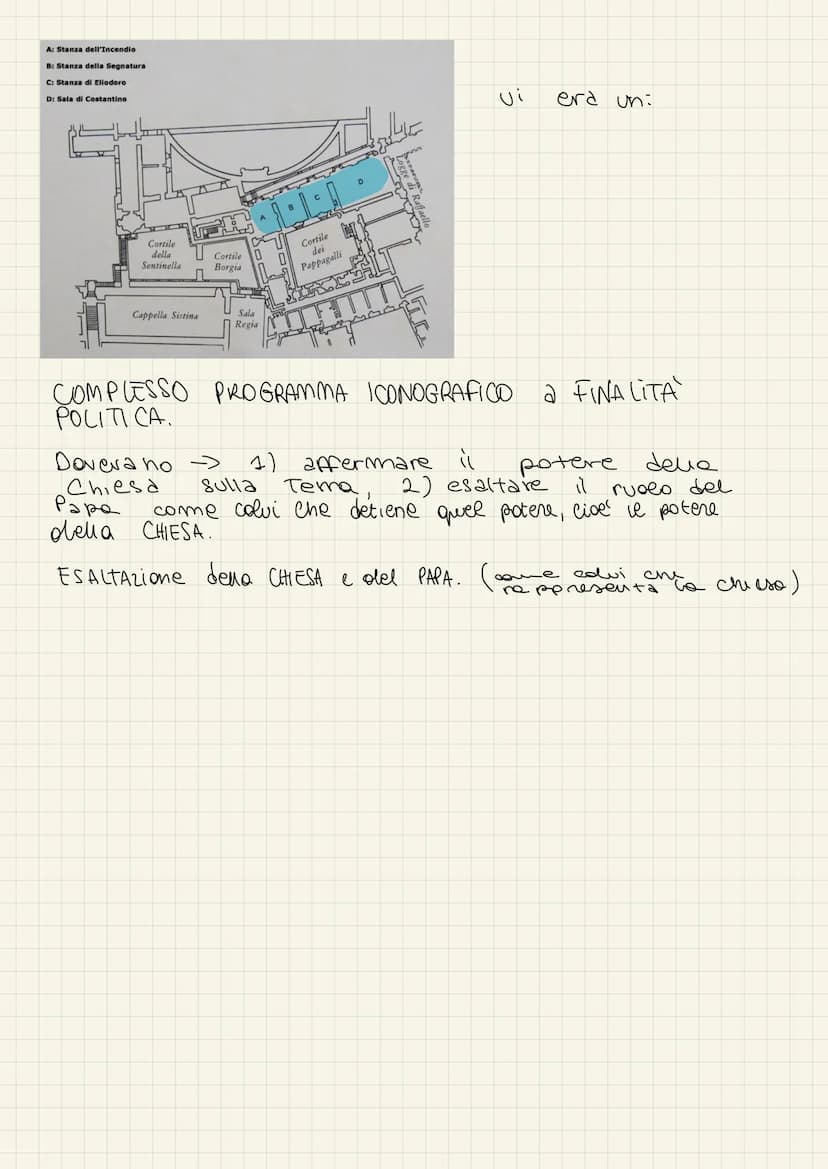 A: Stanza dell'Incendio
B: Stanza della Segnatura
C: Stanza di Eliodoro
D: Sala di Costantino
vi era un:
Logge di Raffaello
A
B
C
D
Cortile
della
Sentinella
Cortile
Borgia
Cortile
dei
Pappagalli
Cappella Sistina
Sala
Regia
COMPLESSO PROGRAMMA ICONOGRAFICO a FINALITÀ
POLITICA.
Dovevano → 1) affermare il potere della
Chiesa sulla Terra, 2) esaltare il ruolo del
Papa come colui che detiene quel potere, cioè il potere
della CHIESA.
ESALTAZIONE della CHIESA e del PAPA. (come colui che
rappresenta la chiesa)